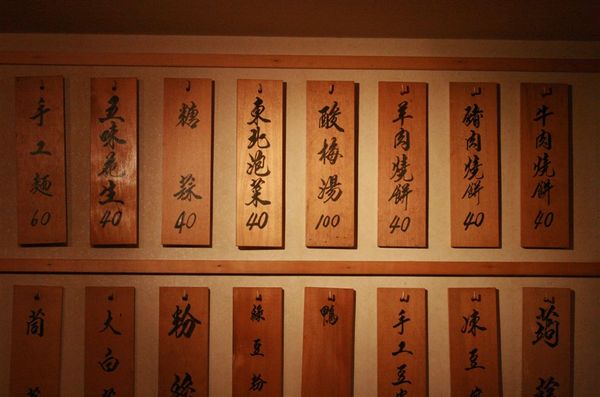 牛肉燒餅 40
豬肉燒餅 40
羊肉燒餅 40
酸梅湯 100
東北泡菜 40
糖蒜 40
五味花生 40
手工麵 60
蒟
凍豆
手工豆
鴨
綠豆粉
粉
大白
茼